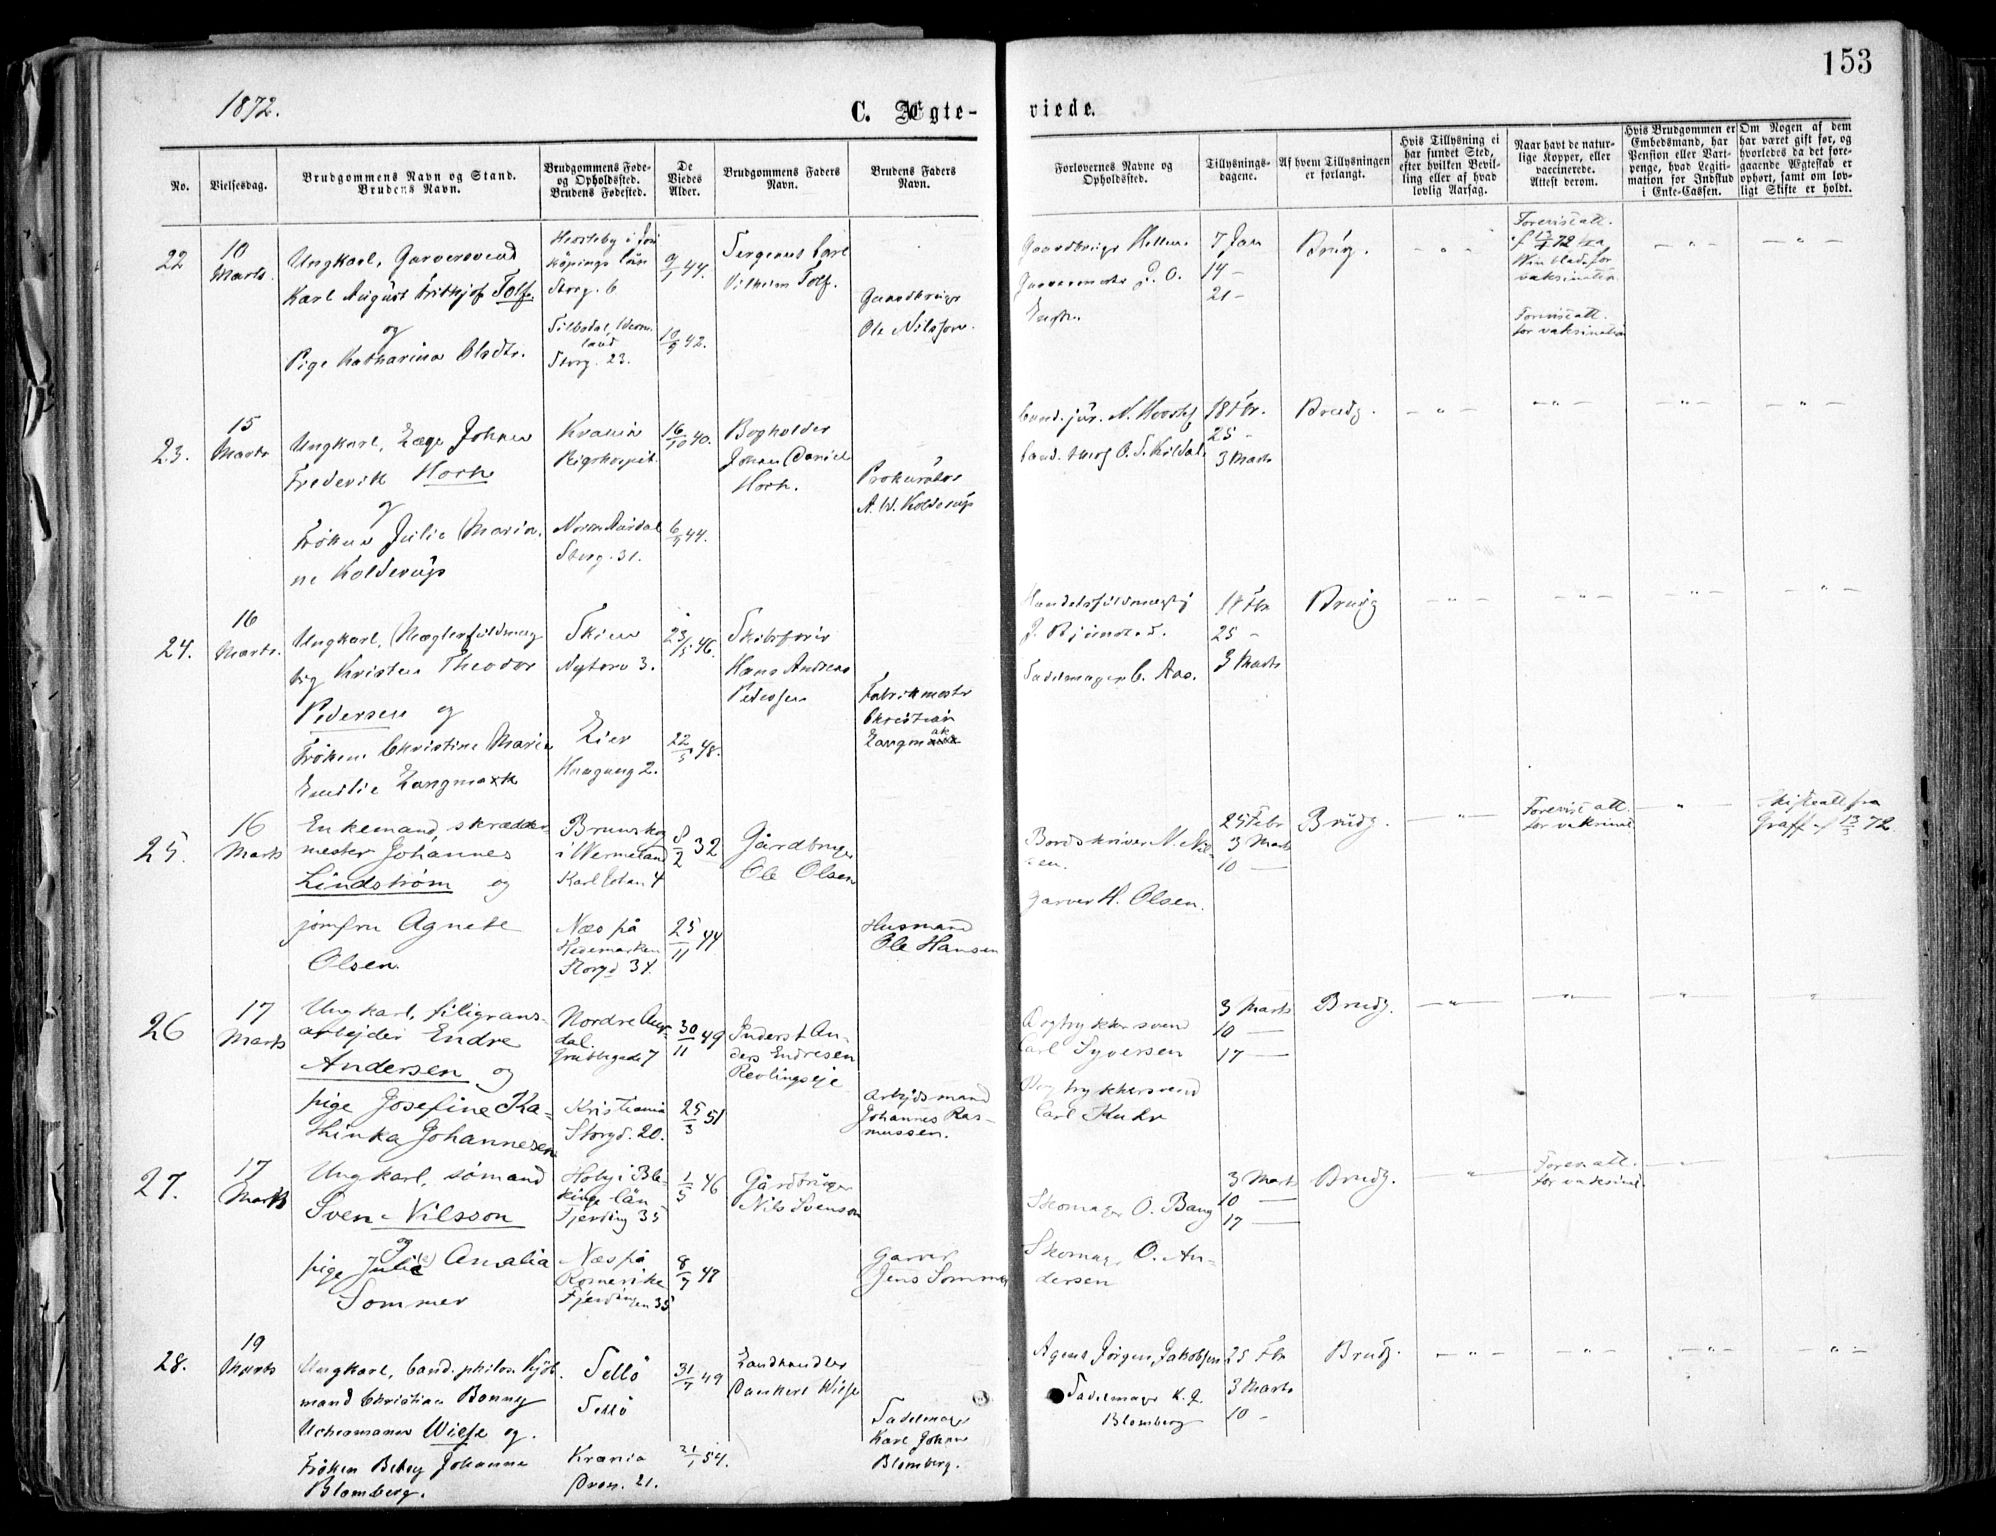 153
1872.
C. Ægte- viede.
No.
Vielsesdag.
Brudgommens Navn og Stand.
Brudens Navn.
Brudgommens Føde-
og Opholdssted.
Brudens Fødested.
De
Viedes
Alder.
Brudgommens Faders
Navn.
Brudens Faders
Navn.
Forlovernes Navne og
Opholdssted.
Tillysnings-
dagene.
Af hvem Tillysningen
er forlangt.
Hvis Tillysning ei
har fundet Sted,
efter hvilken Bevil-
ling eller af hvad
lovlig Aarsag.
Naar havt de natur-
lige Kopper, eller
vaccinerede.
Attest derom.
Hvis Brudgommen er
Embedsmand, har
Pension eller Vart-
penge, hvad Legiti-
mation for Indskud
i Enke-Cassen.
Om Nogen af dem
har været gift før, og
hvorledes da det fore-
gaaende Ægteskab er
ophørt, samt om lov-
ligt Skifte er holdt.
22
10
Marts
Ungkarl, Garversvend
Karl August Frithjof Tolf
og
Pige Katharina Olsdtr.
köpings län
Storg. 6
Storg. 23.
9/1 44.
10/9 42.
Sergeant Carl
Vilhelm Tolf.
Gaardbruger
Ole Nilsson.
7 Jan
14 —
21 —
Brudg.
Forevist att.
for vaksination
23.
15
Marts
Ungkarl, Læge Johan
Frederik Horn
og
Frøken Julie Maria-
ne Kolderup
Krania
Rigshospit.
Norre Aurdal
Storg. 31.
16/10 40.
6/9 44.
Bogholder
Johan Daniel
Horn.
Prokurator
A. W. Kolderup
Cand. jur. N.
Cand. theol. O. S. Kildal
18 Fbr.
25 -
3 Marts
Brudg.
24.
16
Marts.
Ungkarl, Mæglerfuldmæg-
tig Kristen Theodor
Pedersen og
Frøken Christine Marie
Emilie Langmaak
Skien
Nytorv 3.
Eier
23/5 46.
22/5 48.
Skibsfører
Hans Andreas
Pedersen
Fabrikmester
Christian
Langmaak
Handelsfuldmægtig
J. Bjørnstad.
Sadelmager C. Aas.
18 Fbr
25 -
3 Marts
Brudg
25.
16
Marts
Enkemand, skrædder-
mester Johannes
Lindstrøm og
jomfru Agnete
Olsen.
Brunskog
i Wermeland
Karl Johan 4
Næs på
Hedemarken
Storgd 34.
8/2 32
25/11 44
Gårdbruger
Ole Olsen
Husmand
Ole Hansen
Bordskriver N. Nil-
sen.
Garver H. Olsen.
25 Febr
3 Marts
10 —
Brudg.
Forevist att.
for vaksinat.
Skifteatt fra
Graff af 13/3 72.
26
17
Marts
Ungkarl, filigrans-
arbejder Endre
Andersen og
pige Josefine Ka-
thinka Johannesen
Nordre Aur-
dal.
Grubbegade 7
Kristiania
Storgd. 20.
30/11 49
25/3 51
Inderst An-
ders Endresen
Revlingseje
Arbejdsmand
Johannes Ras-
mussen.
Bogtrykkersvend
Carl Syversen
Bogtrykkersvend
Carl
3 Marts
10 —
17 —
Brudg.
27.
17
Marts
Ungkarl, sømand
Sven Nilsson
og
pige Julie Amalia
Sommer
Hoby i Ble-
kinge län
Fjerding 35
Næs på
Romerike
Fjerdingen 35
1/5 46
8/7 47
Gårdbruger
Nils Svenson
Garver
Jens Sommer
Skomager O. Bang
Skomag. O. An-
dersen
3 Marts
10 —
17 —
Brudg.
Forev. att.
for vaksinat.
28.
19
Marts
Ungkarl, Cand. philos. Kjøb-
mand Christian Bonnevy
Uchermann Wiese og.
Frøken Betsy Johanne
Blomberg.
Sellö
Sellö
Krania
Dron. 21.
31/7 49
21/1 54.
Landhandler
Dankert Wiese
Sadelmager
Karl Johan
Blomberg.
Agent Jörgen Jakobsen
Sadelmager K. J.
Blomberg
25 Fbr
3 Marts
10 -
Brudg.